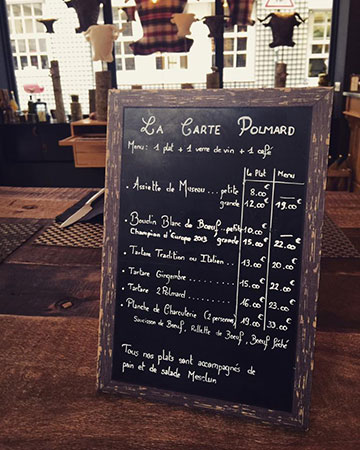 La Carte Polmard
Menu : 1 plat + 1 verre de vin + 1 café
Le Plat Menu
• Assiette de Museau ... petite 8.00€
grande 12.00€ 19.00€
• Boudin Blanc de Bœuf .. petit 10.00€
Champion d'Europe 2013 grande 15.00€ 22.00€
• Tartare Tradition ou Italien .. 13.00€ 20.00€
• Tartare Gingembre ........ 15.00€ 22.00€
• Tartare 2 Polmard ........ 16.00€ 23.00€
• Planche de Charcuterie (2 personnes) 19.00€ 33.00€
Saucisson de Bœuf, Rillette de Bœuf, Bœuf séché
Tous nos plats sont accompagnés de
pain et de salade Mesclun